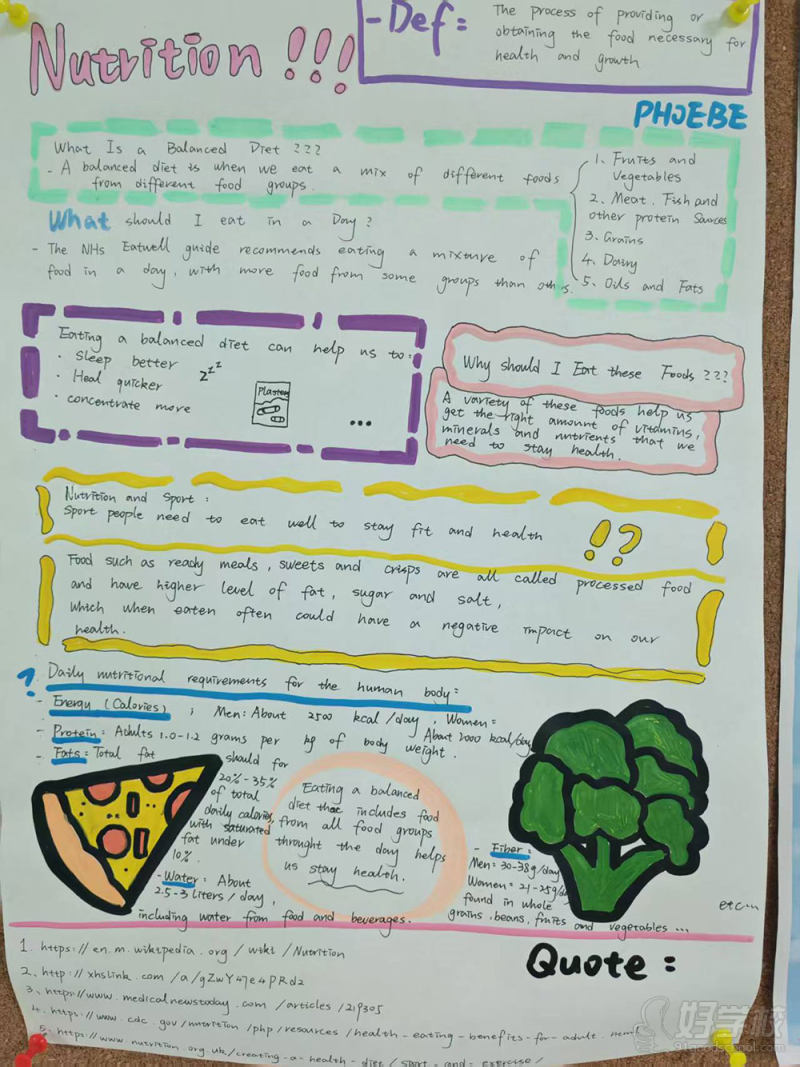 Nutrition !!!
-Def=
The process of providing or
obtaining the food necessary for
health and growth
PHOEBE
What Is a Balanced Diet ???
- A balanced diet is when we eat a mix of different foods
from different food groups.
1. Fruits and
Vegetables
2. Meat. Fish and
other protein Sources
3. Grains
4. Dairy
5. Oils and Fats
What should I eat in a Day?
- The NHs Eatwell guide recommends eating a mixture of
food in a day, with more food from some groups than others.
Eating a balanced diet can help us to:
· Sleep better
· Heal quicker
· concentrate more
zzz
Plasters
...
Why should I Eat these Foods ???
A variety of these foods help us
get the right amount of vitamins,
minerals and nutrients that we
need to stay health.
Nutrition and Sport:
Sport people need to eat well to stay fit and health
!?
Food such as ready meals, sweets and crisps are all called processed food
and have higher level of fat, sugar and salt,
which when eaten often could have a negative impact on our
health.
? Daily nutritional requirements for the human body:
- Energy (Calories) ; Men: About 2500 kcal/day, Women:
About 2000 kcal/day
- Protein: Adults 1.0-1.2 grams per kg of body weight.
- Fats: Total fat should for
20%-35%
of total
daily calories,
with saturated
fat under
10%.
- Water: About
2.5-3 liters/day,
including water from food and beverages.
Eating a balanced
diet that includes food
from all food groups
throught the day helps
us stay health.
- Fiber:
Men: 30-38g/day
Women: 21-25g/day
found in whole
grains, beans, fruits and vegetables ...
etc...
Quote:
1. https://en.m.wikipedia.org/wiki/Nutrition
2. http://xhslink.com/a/gZwY47e4PRd2
3. https://www.medicalnewstoday.com/articles/219305
4. https://www.cdc.gov/nutrition/php/resources/health-eating-benefits-for-adult.html
5. https://www.nutrition.org.uk/creating-a-health-diet/sport-and-exercise/
好学校
91goodschool.com